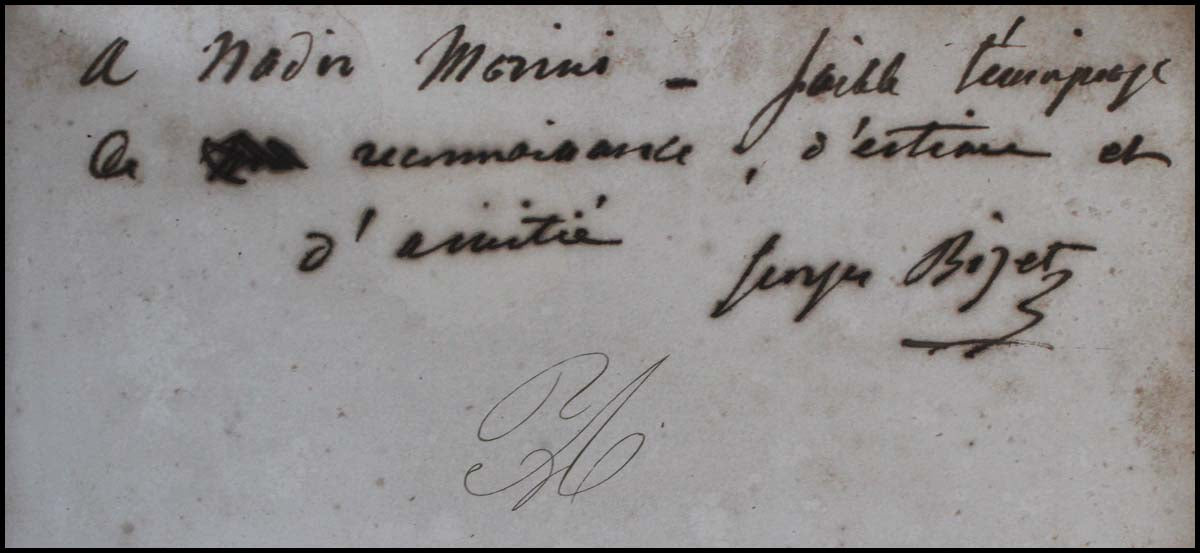 A Nadir Morini - faible témoignage
de reconnaissance, d'estime et
d'amitié
Georges Bizet